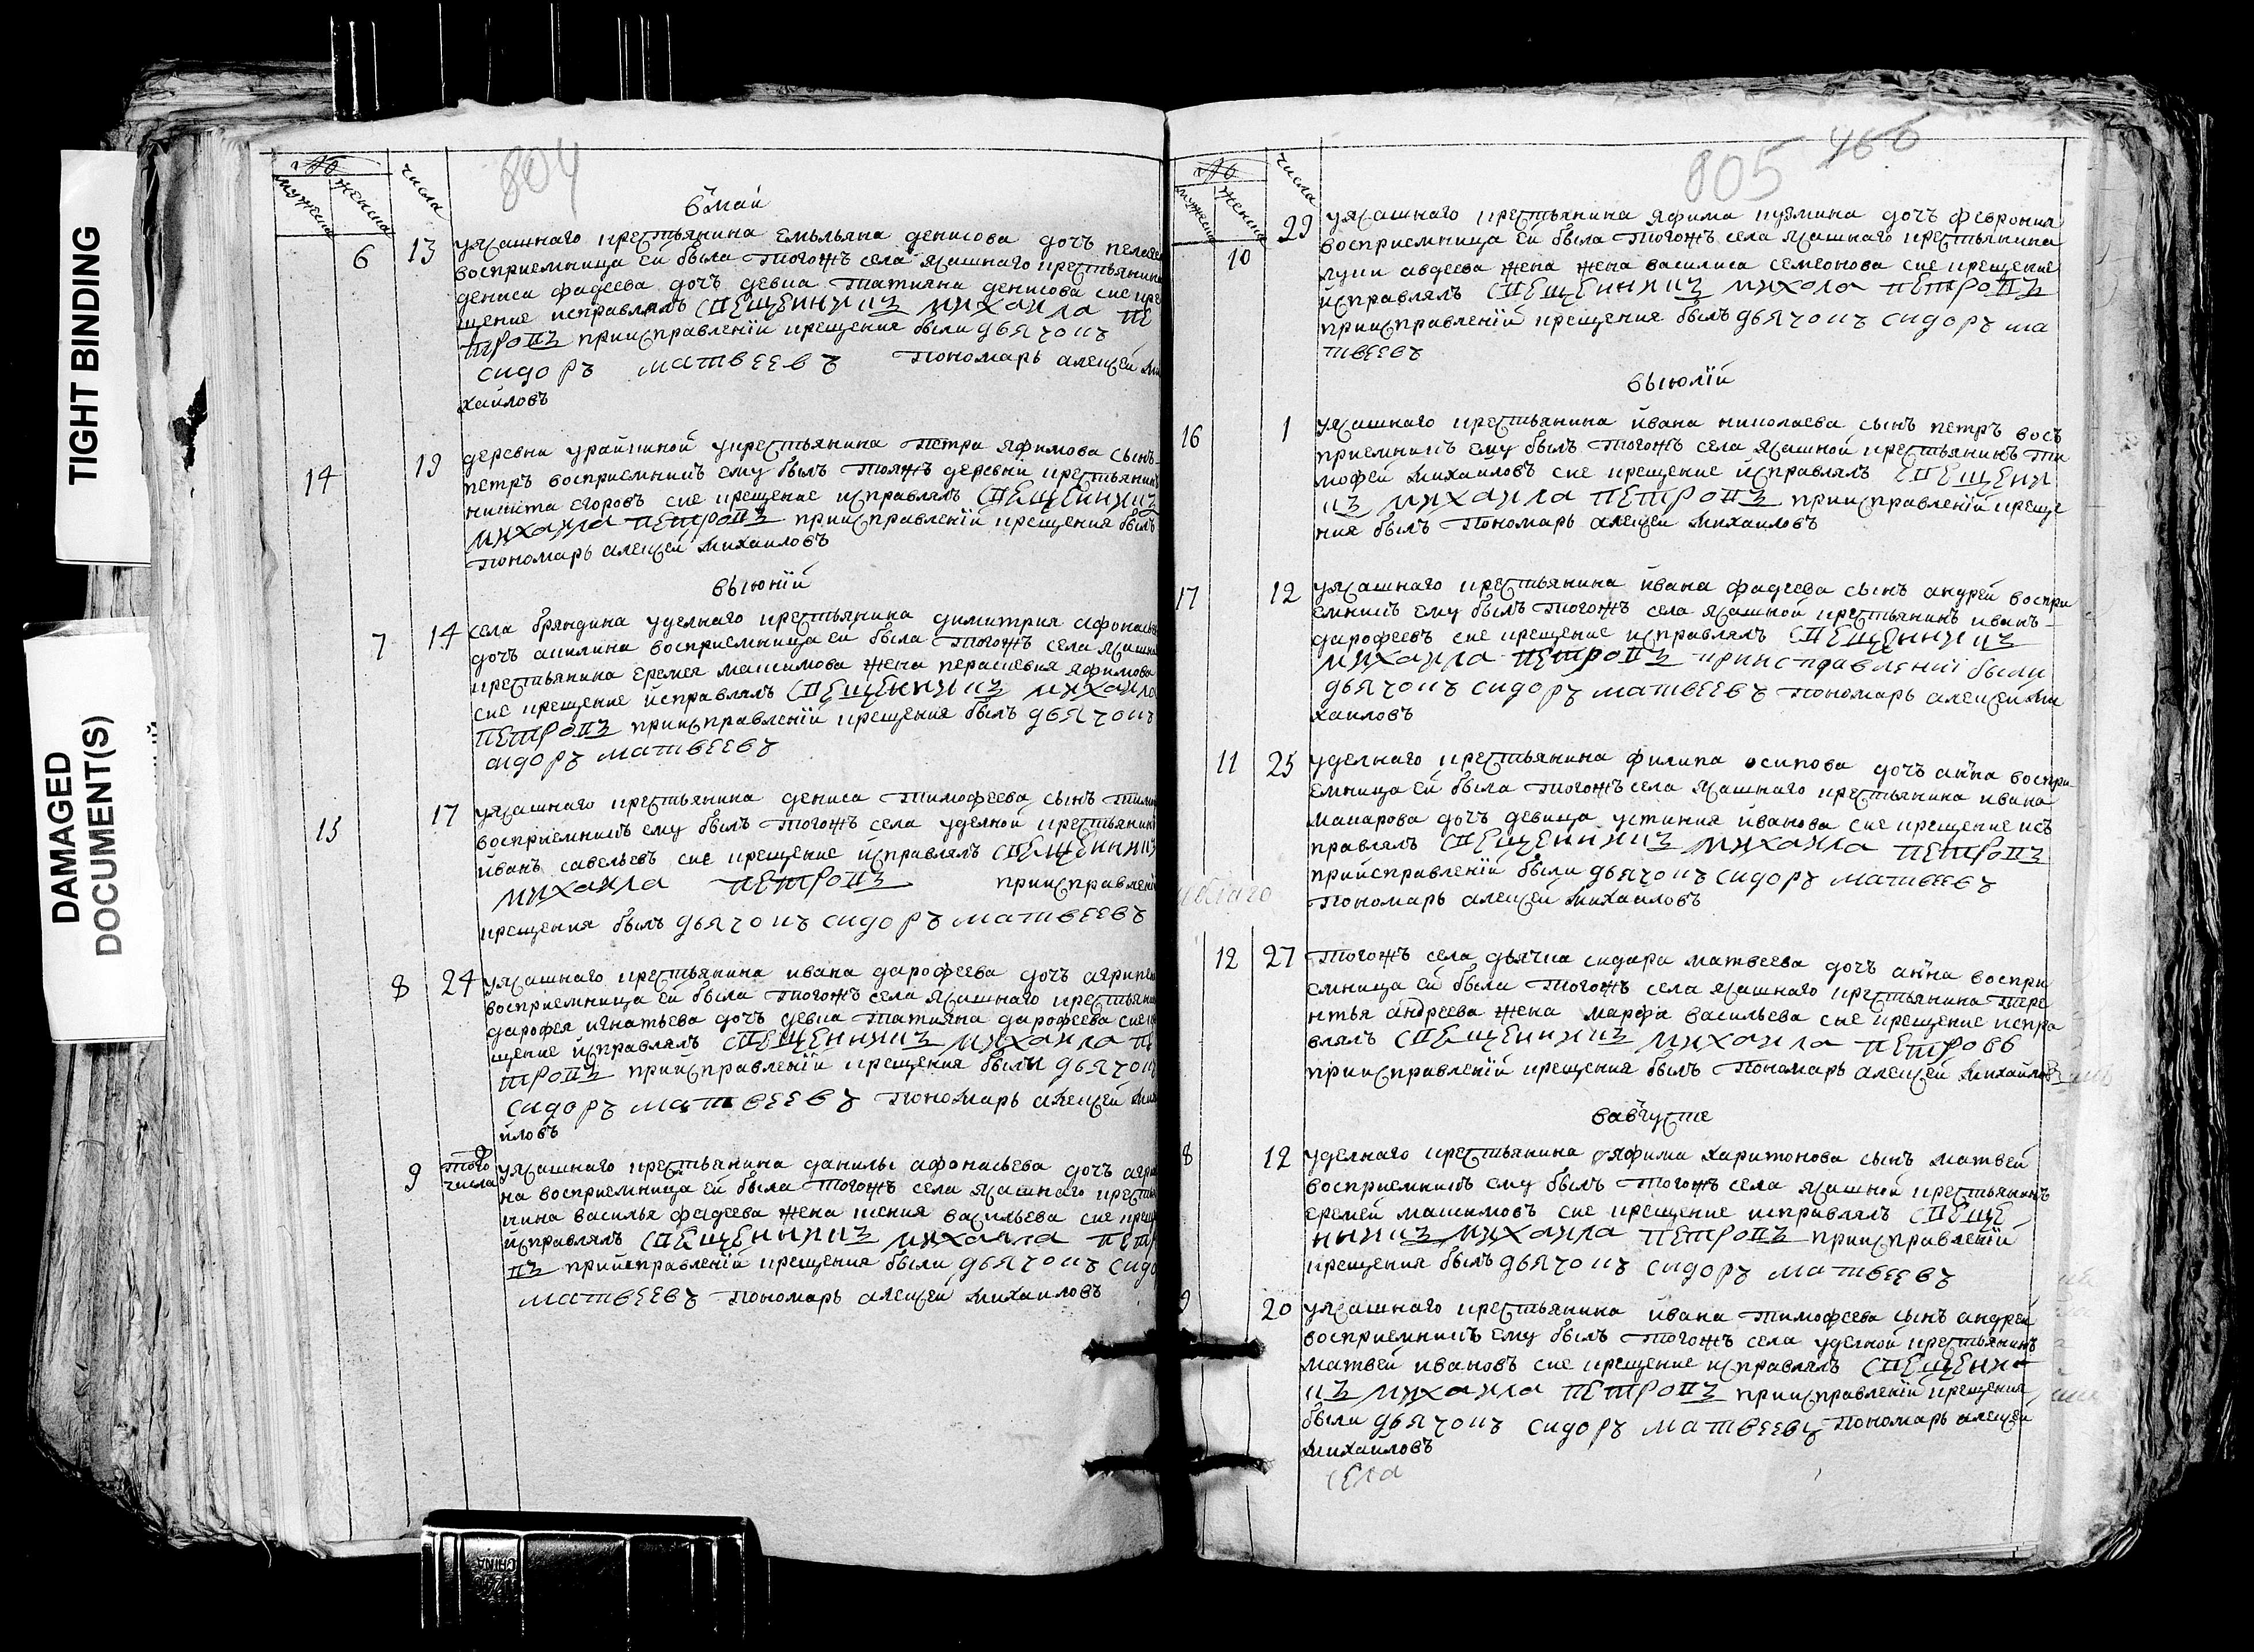 TIGHT BINDING
DAMAGED
DOCUMENT(S)
804
№
мужеска
женска
числа
в май
6 13 у ясашнаго крестьянина емельяна денисова дочь пелагея
восприемница ей была тогожъ села ясашнаго крестьянина
дениса фадеева дочь девка татияна денисова сие кре
щение исправлялъ священникъ михаила пе
тровъ приисправленїи крещения были дьячокъ
сидоръ матвеевъ пономарь алексей ми
хайловъ
14 19 деревни урайкиной у крестьянина петра яфимова сынъ
петръ восприемникъ ему былъ тояжъ деревни крестьянинъ
никита егоровъ сие крещение исправлялъ священникъ
михаила петровъ приисправленїи крещения былъ
пономарь алексей михаиловъ
выюнїи
7 14 села бряндина уделнаго крестьянина димитрия афонасьева
дочь акилина восприемница ей была тогожъ села ясашна
крестьянина еремея максимова жена парасцевия яфимова
сие крещение исправлялъ священникъ михаила
петровъ приисправленїи крещения былъ дьячокъ
сидоръ матвеевъ
15 17 у ясашнаго крестьянина дениса тимофеева сынъ
восприемникъ ему былъ тогожъ села уделной крестьянинъ
иванъ савельевъ сие крещение исправлялъ священникъ
михаила петровъ приисправленї
крещения былъ дьячокъ сидоръ матвеевъ
8 24 у ясашнаго крестьянина ивана дарофеева дочь агрипена
восприемница ей была тогожъ села ясашнаго крестьяни
дарофея игнатьева дочь девка татияна дарофеева сие кре
щение исправлялъ священникъ михаила пе
тровъ приисправленїи крещения были дьячокъ
сидоръ матвеевъ пономарь алексей миха
йловъ
9 того числа у ясашнаго крестьянина данилы афонасьева дочь агрипе
на восприемница ей была тогожъ села ясашнаго кресть
янина василья фадеева жена ксения васильева сие крещ
исправлялъ священникъ михаила петро
въ приисправленїи крещения были дьячокъ сидо
матвеевъ пономарь алексей михаиловъ
805 466
№
мужеска
женска
числа
10 29 у ясашнаго крестьянина яфима кузмина дочь феврония
восприемница ей была тогожъ села ясашнаго крестьянина
луки авдеева жена жена василиса семеонова сие крещение
исправлялъ священникъ михаила петровъ
приисправленїи крещения былъ дьячокъ сидоръ ма
твеевъ
выюлїи
16 1 у ясашнаго крестьянина ивана николаева сынъ петръ вос
приемникъ ему былъ тогожъ села ясашной крестьянинъ ти
мофей михаиловъ сие крещение исправлялъ священни
къ михаила петровъ приисправленїи креще
ния былъ пономарь алексей михаиловъ
17 12 у ясашнаго крестьянина ивана фадеева сынъ андрей воспри
емникъ ему былъ тогожъ села ясашной крестьянинъ иванъ
дарофеевъ сие крещение исправлялъ священникъ
михаила петровъ приисправленїи были
дьячокъ сидоръ матвеевъ пономарь алексей ми
хаиловъ
11 25 уделнаго крестьянина филипа осипова дочь анна воспри
емница ей была тогожъ села ясашнаго крестьянина ивана
макарова дочь девица устиния иванова сие крещение ис
правлялъ священникъ михаила петровъ
приисправленїи были дьячокъ сидоръ матвеевъ
пономарь алексей михаиловъ
12 27 тогожъ села дьячка сидара матвеева дочь анна воспри
емница ей была тогожъ села ясашнаго крестьянина тере
нтья андреева жена марфа васильева сие крещение испра
влялъ священникъ михаила петровъ
приисправленїи крещения былъ пономарь алексей михайловъ
вавгусте
8 12 уделнаго крестьянина яфима харитонова сынъ матвей
восприемникъ ему былъ тогожъ села ясашной крестьянинъ
еремей максимовъ сие крещение исправлялъ свяще
нникъ михаила петровъ приисправленїи
крещения былъ дьячокъ сидоръ матвеевъ
9 20 у ясашнаго крестьянина ивана тимофеева сынъ андрей
восприемникъ ему былъ тогожъ села уделной крестьянинъ
матвей ивановъ сие крещение исправлялъ священни
къ михаила петровъ приисправленїи крещения
были дьячокъ сидоръ матвеевъ пономарь алексей
михаиловъ
села
CHINA